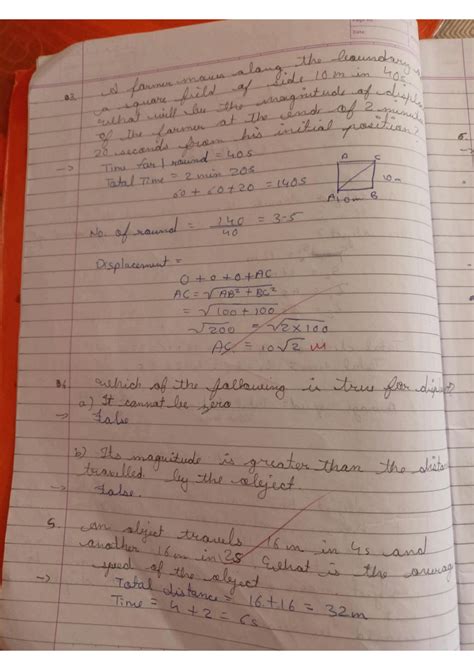 Q3. A farmer moves along the boundary
a square field of side 10 m in 40s.
what will be the magnitude of displ
of the farmer at the end of 2 minut
20 seconds from his initial position?
→ Time for 1 round = 40s
Total Time = 2 min 20s
60 + 60 + 20 = 140s
A C
10m
A 10m B
No. of round = 140/40 = 3.5
Displacement =
0 + 0 + 0 + AC
AC = √AB² + BC²
= √100 + 100
√200 = √2×100
AC = 10√2 m
Q4. which of the following is true for disp
a) It cannot be zero
→ False
b) Its magnitude is greater than the distan
travelled by the object.
→ False.
5. an object travels 16 m in 4s and
another 16 m in 2s what is the averag
speed of the object
→ Total distance = 16+16 = 32m
Time = 4 + 2 = 6s